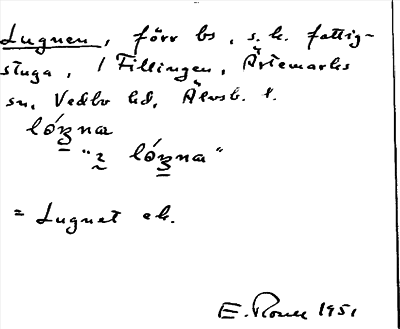 Lugnen, förr bs, s.k. fattig-
stuga, i Fillingen, Ärtemarks
sn, Vedbo hd, Älvsb. l.
lóʒna
"2 lóʒna"
= Lugnet ek.
E. 1951